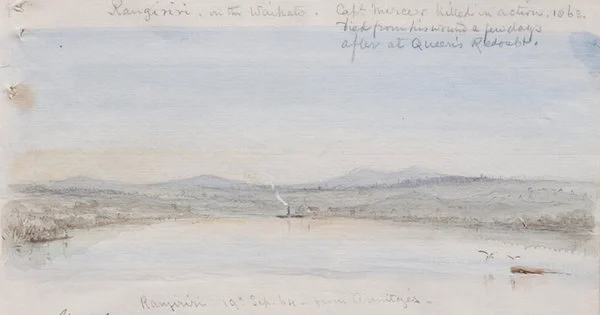 Rangiriri, on the Waikato.
Capt. Mercer killed in action, 1863.
Died from his wound a few days
after at Queen's Redoubt.
Rangiriri 19th Sep. 64 - from Armitage's -